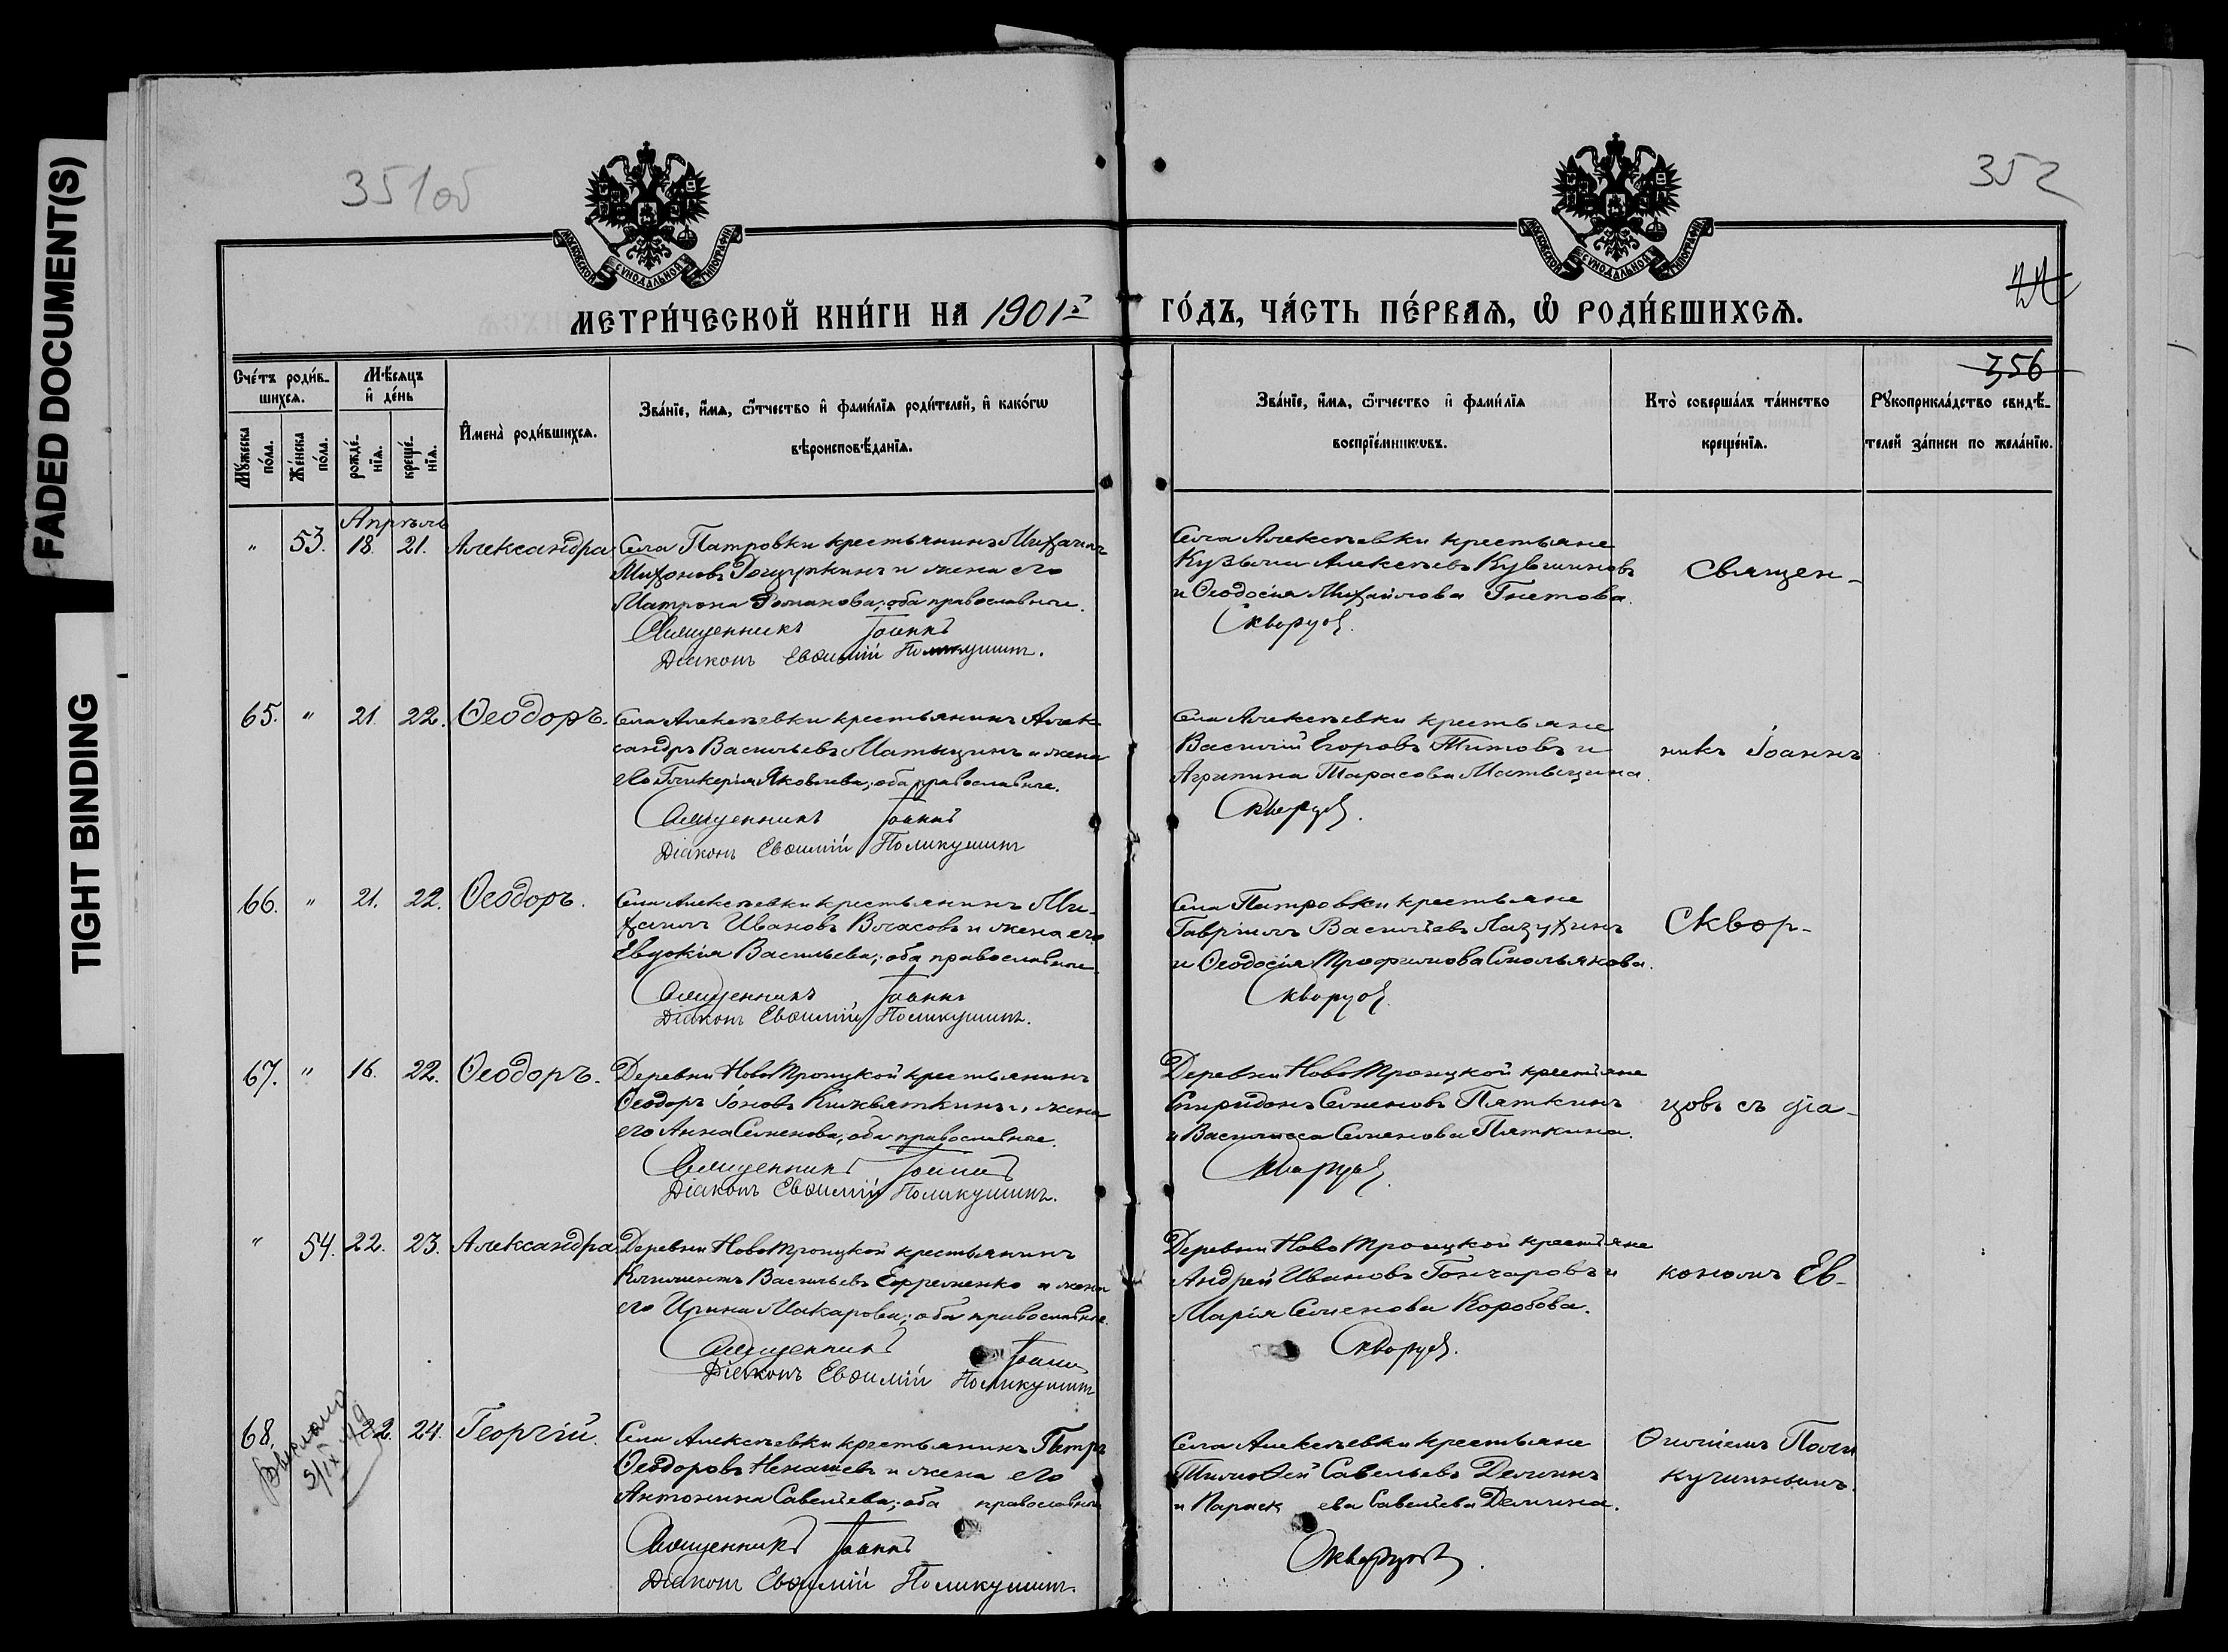 FADED DOCUMENT(S)
TIGHT BINDING
351об
352
МОСКОВСКОЙ СѴНОДАЛЬНОЙ ТИПОГРАФІИ
МОСКОВСКОЙ СѴНОДАЛЬНОЙ ТИПОГРАФІИ
МЕТРИ́ЧЕСКОЙ КНИ́ГИ НА 1901й ГО́ДЪ, ЧА́СТЬ ПЕ́РВАѦ, Ѿ РОДИ́ВШИХСѦ.
356
Сче́тъ роди́в-
шихсѧ.
Мꙋ́жеска
по́ла.
Же́нска
по́ла.
Мѣ́сѧцъ
и҆ де́нь
рожде́-
нїѧ.
креще́-
нїѧ.
И҆мена̀ роди́вшихсѧ.
Зва́нїе, и҆́мѧ, ѻ҆́тчество и҆ фами́лїѧ роди́телей, и҆ како́гѡ
вѣроисповѣ́данїѧ.
Зва́нїе, и҆́мѧ, ѻ҆́тчество и҆ фами́лїѧ
воспрїе́мникѡвъ.
Кто̀ соверша́лъ та́инство
креще́нїѧ.
Рꙋкоприкла́дство свидѣ́-
телей за́писи по жела́нїю.
Апрѣль
" 53. 18. 21. Александра Села Патровки крестьянинъ Михаилъ
Матрона Романова; оба православные.
Священникъ Іоаннъ
Діаконъ Евѳимій Поликушинъ.
Села Алексѣевки крестьяне
Кузьма Алексѣевъ Кувшиновъ
и Ѳеодосія Михайлова Гнетова.
Скворцовъ.
Священ-
65. " 21. 22. Ѳеодоръ. Села Алексѣевки крестьянинъ Алек
сандръ Васильевъ Матыцинъ и жена
его Гликерія Яковлева; оба православные.
Священникъ Іоаннъ
Діаконъ Евѳимій Поликушинъ
Села Алексѣевки крестьяне
Василій Егоровъ Титовъ и
Агрипина Тарасова Матыцина.
Скворцовъ.
никъ Іоаннъ
66. " 21. 22. Ѳеодоръ. Села Алексѣевки крестьянинъ Ми-
хаилъ Ивановъ Власовъ и жена его
Евдокія Васильева; оба православные.
Священникъ Іоаннъ
Діаконъ Евѳимій Поликушинъ.
Села Патровки крестьяне
Гавріилъ Васильевъ Лазухинъ
и Ѳеодосія Трофимова Смольякова.
Скворцовъ.
Сквор-
67. " 16. 22. Ѳеодоръ. Деревни Ново Троицкой крестьянинъ
его Анна Семенова; оба православные.
Священникъ Іоаннъ
Діаконъ Евѳимій Поликушинъ.
Деревни Ново Троицкой крестьяне
Спиридонъ Семеновъ Пяткинъ
и Василисса Семенова Пяткина.
Скворцовъ.
цовъ съ діа-
" 54. 22. 23. Александра Деревни Ново Троицкой крестьянинъ
Климентъ Васильевъ Ефременко и жена
его Ирина Макарова; оба православные.
Священникъ Іоаннъ
Діаконъ Евѳимій Поликушинъ
Деревни Ново Троицкой крестьяне
Андрей Ивановъ Гончаровъ и
Марія Семенова Коробова.
Скворцовъ.
кономъ Ев-
68. 22. 24. Георгій. Села Алексѣевки крестьянинъ Петръ
Ѳеодоровъ Ненашевъ и жена его
Антонина Савельева; оба православные
Священникъ Іоаннъ
Діаконъ Евѳимій Поликушинъ.
Села Алексѣевки крестьяне
Тимоѳей Савельевъ Деминъ
и Параскева Савельева Демина.
Скворцовъ.
ѳиміемъ Поли
кушинымъ.